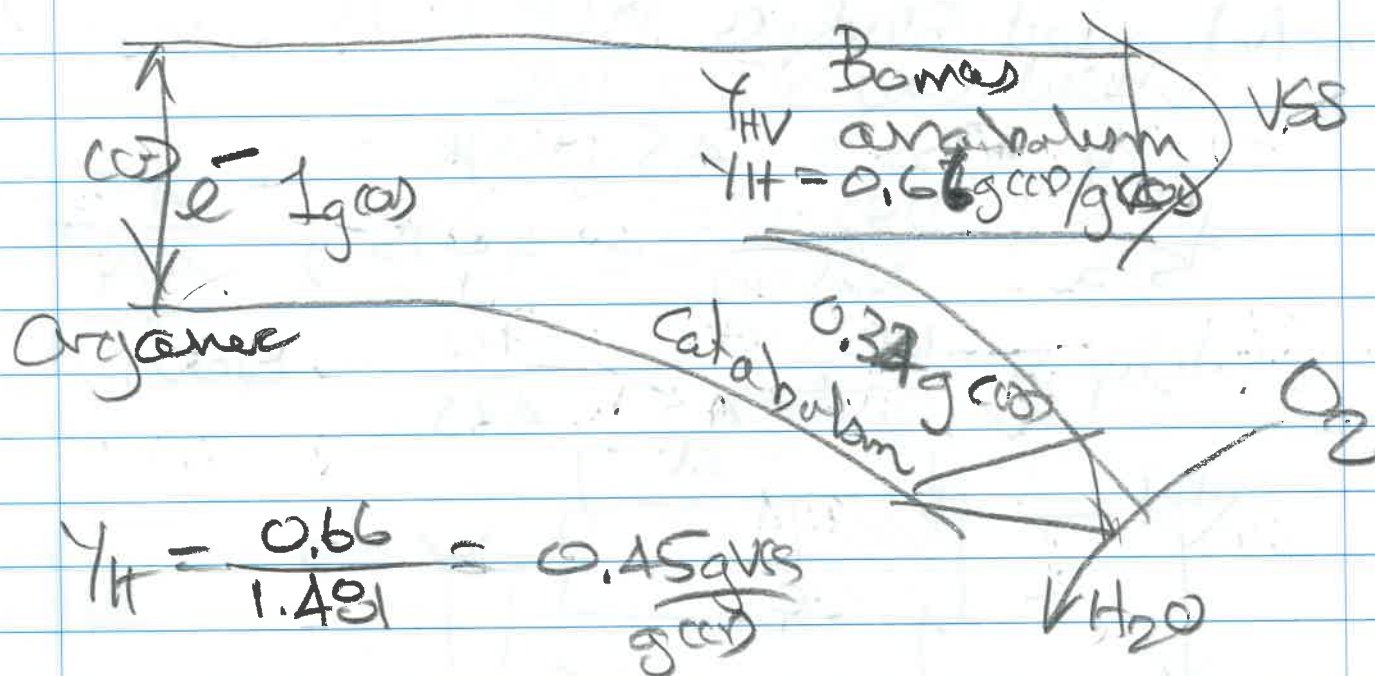 Bomas
Y_HV anabolism VSS
e⁻ 1g COD
YH = 0.66 g COD/g COD
Organic
Catabolism 0.34 g COD
O₂
Y_H = 0.66 / 1.481 = 0.45 gVSS / g COD
H₂O